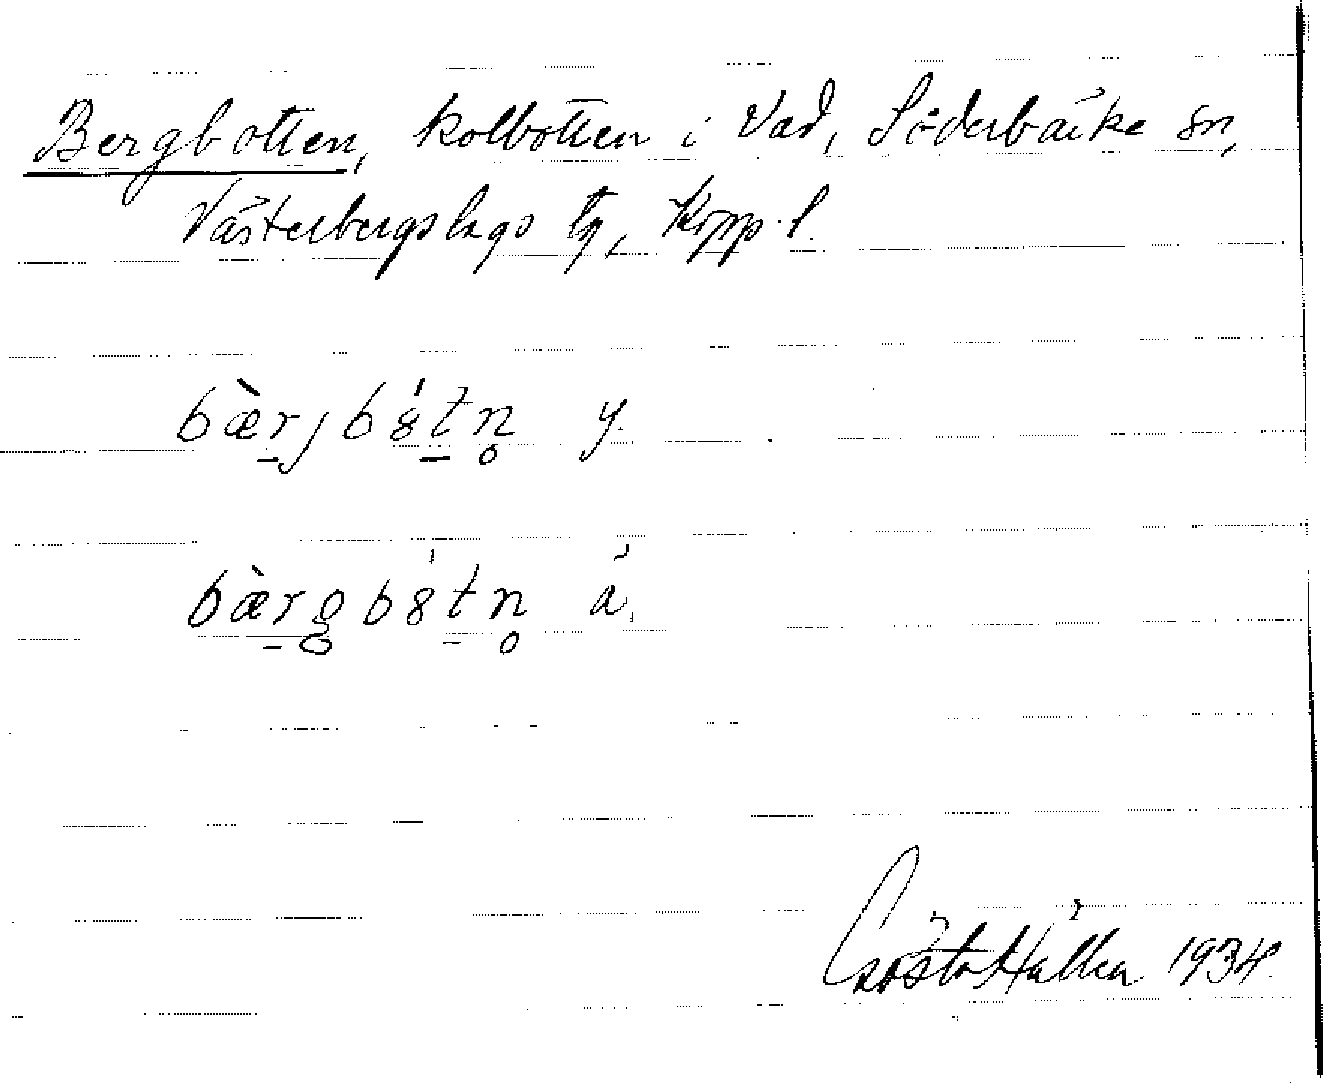 Bergbotten, kolbotten i Vad, Söderbärke sn,
Västerbergslags tg, Kopp. l.
bæ̀r̠jbȣ́t̠n̥ y.
bæ̀r̠g̥bȣ́t̠n̥ ä.
Gösta Hallen 1934.